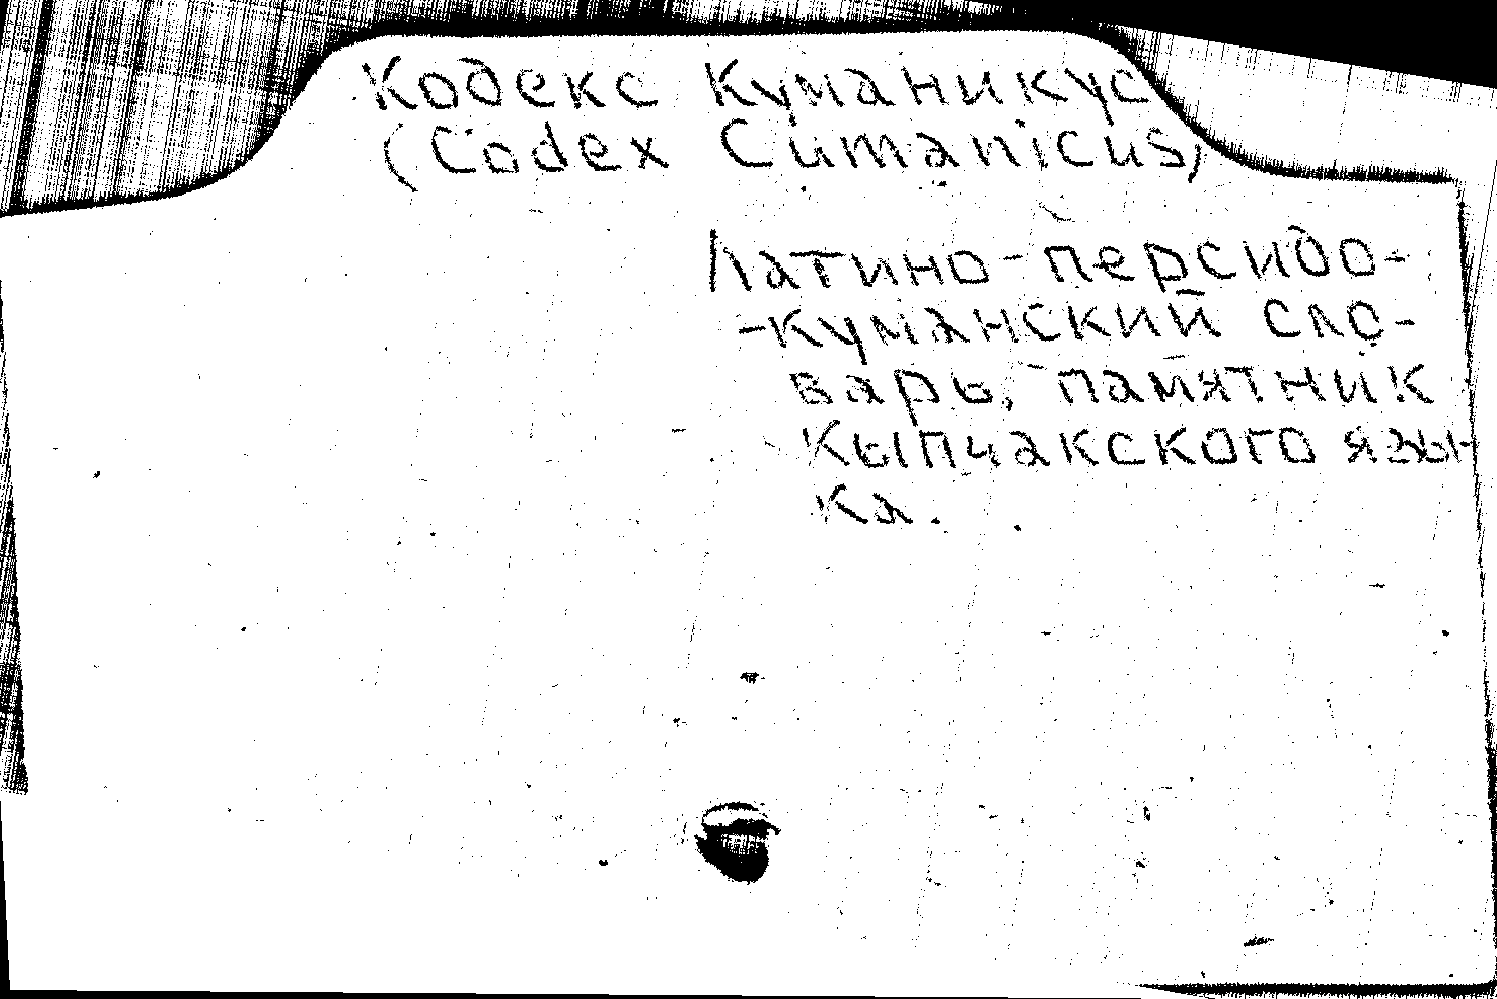 Кодекс Куманикус
(Codex Cumanicus)
Латино-персидо-
-куманский сло-
варь, памятник
кыпчакского язы-
ка.